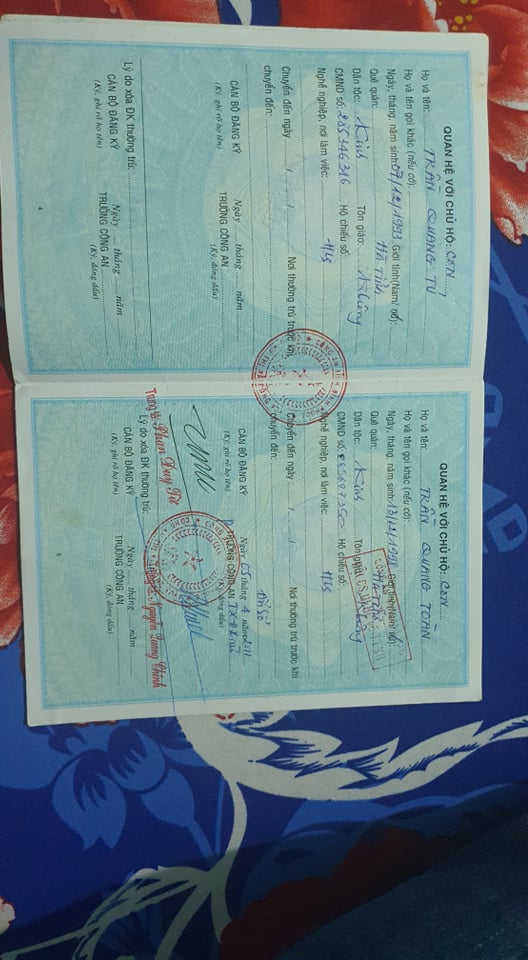 QUAN HỆ VỚI CHỦ HỘ: CON
Họ và tên: TRẦN QUANG TÚ
Họ và tên gọi khác (nếu có):
Ngày, tháng, năm sinh: 07/12/1993 Giới tính(Nam/ nữ):
Quê quán: Hà Tĩnh
Dân tộc: Kinh Tôn giáo: Không
CMND số: 285346316 Hộ chiếu số:
Nghề nghiệp, nơi làm việc: H/S
Chuyển đến ngày / / Nơi thường trú trước khi
chuyển đến:
Ngày ..... tháng ..... năm
CÁN BỘ ĐĂNG KÝ TRƯỞNG CÔNG AN
(Ký, ghi rõ họ tên) (Ký, đóng dấu)
Lý do xóa ĐK thường trú:
Ngày ..... tháng ..... năm
CÁN BỘ ĐĂNG KÝ TRƯỞNG CÔNG AN
(Ký, ghi rõ họ tên) (Ký, đóng dấu)
4
QUAN HỆ VỚI CHỦ HỘ: CON
Họ và tên: TRẦN QUANG TOÀN
Họ và tên gọi khác (nếu có):
Ngày, tháng, năm sinh: 13/12/1998 Giới tính(Nam/ nữ):
Quê quán:
Dân tộc: Kinh Tôn giáo: Không
CMND số: Hộ chiếu số:
Nghề nghiệp, nơi làm việc: H/S
Chuyển đến ngày / / Nơi thường trú trước khi
chuyển đến:
Ngày 05 tháng 4 năm
CÁN BỘ ĐĂNG KÝ TRƯỞNG CÔNG AN
(Ký, ghi rõ họ tên)
Trung tá Phan Duy Từ
Nguyễn Quang Chinh
Lý do xóa ĐK thường trú:
Ngày ..... tháng ..... năm
CÁN BỘ ĐĂNG KÝ TRƯỞNG CÔNG AN
(Ký, ghi rõ họ tên) (Ký, đóng dấu)
5